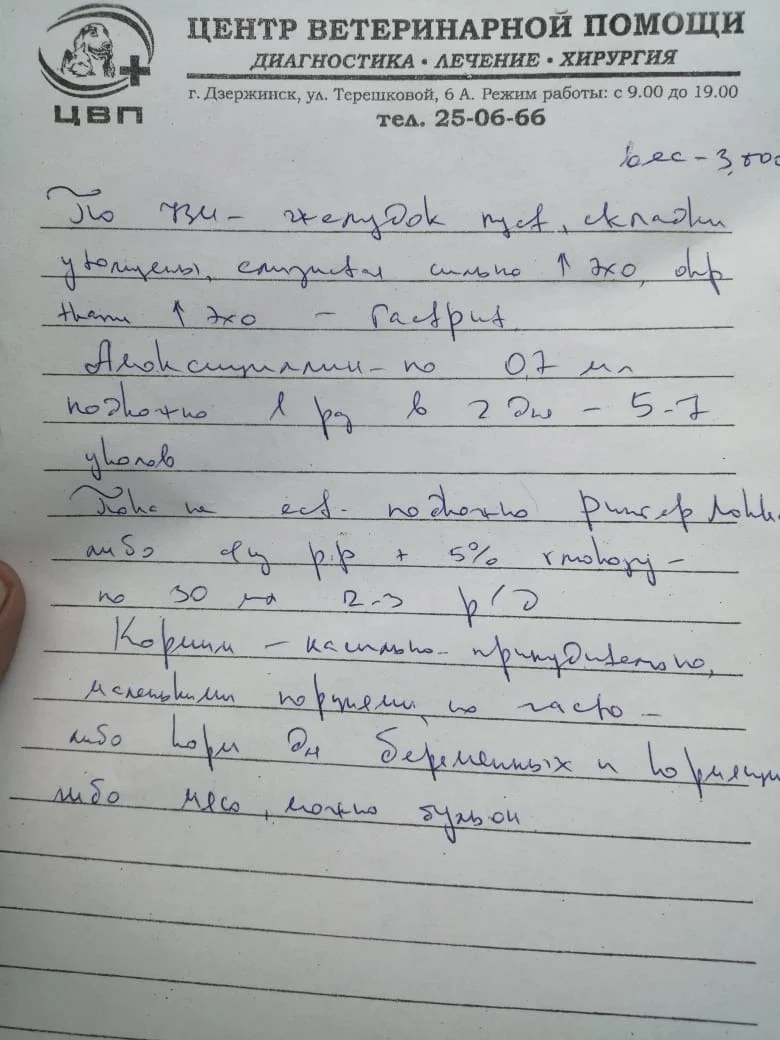 ЦВП
ЦЕНТР ВЕТЕРИНАРНОЙ ПОМОЩИ
ДИАГНОСТИКА • ЛЕЧЕНИЕ • ХИРУРГИЯ
г. Дзержинск, ул. Терешковой, 6 А. Режим работы: с 9.00 до 19.00
тел. 25-06-66
вес - 3,
По УЗИ - желудок пуст, складки
утолщены, слизистая сильно ↑ эхо, окр
ткани ↑ эхо - Гастрит
Амоксициллин - по 0,7 мл
подкожно 1 раз в 2 дня - 5-7
уколов
Пока не ест - подкожно Рингер Локка
либо физ р-р + 5% глюкозу -
по 30 мл 2-3 р/д
Кормим - насильно - принудительно,
маленькими порциями, но часто -
либо корм для беременных и кормящих
либо мясо, можно бульон